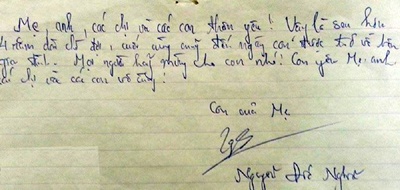 Mẹ, anh, các chị và các con thân yêu! Vậy là sau hơn
4 năm dài chờ đợi, cuối cùng cũng đến ngày con được trở về bên
gia đình. Mọi người hãy mừng cho con nhé! Con yêu Mẹ, anh
các chị và các con vô cùng!
Con của Mẹ
Nguyễn Đức Nghĩa